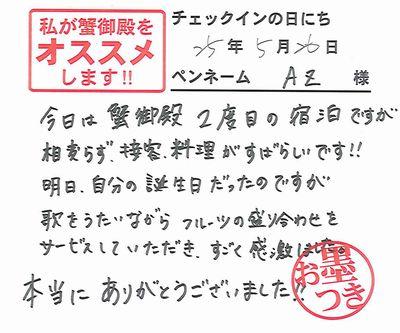 私が蟹御殿を
オススメ
します!!
チェックインの日にち
25年5月26日
ペンネーム AZ 様
今日は蟹御殿2度目の宿泊ですが
相変らず、接客、料理がすばらしいです!!
明日、自分の誕生日だったのですが
歌をうたいながらフルーツの盛り合わせを
サービスしていただき、すごく感激した。
本当にありがとうございました!!
お墨
つき